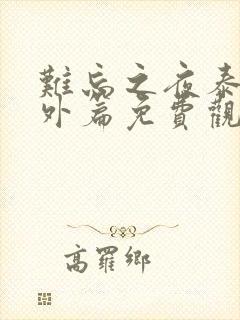 難忘之夜泰
外篇免費觀
高羅鄉